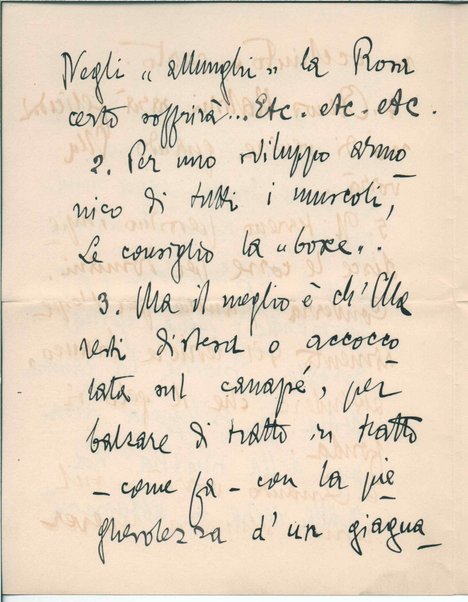 Negli "allunghi" la Rosa
certo soffrirà... Etc. etc. etc.
2. Per uno sviluppo armo
nico di tutti i muscoli,
Le consiglio la "boxe".
3. Ma il meglio è ch'Ella
resti distesa o accocco
lata sul canapé, per
balzare di tratto in tratto
– come fa – con la pie
ghevolezza d'un giagua_